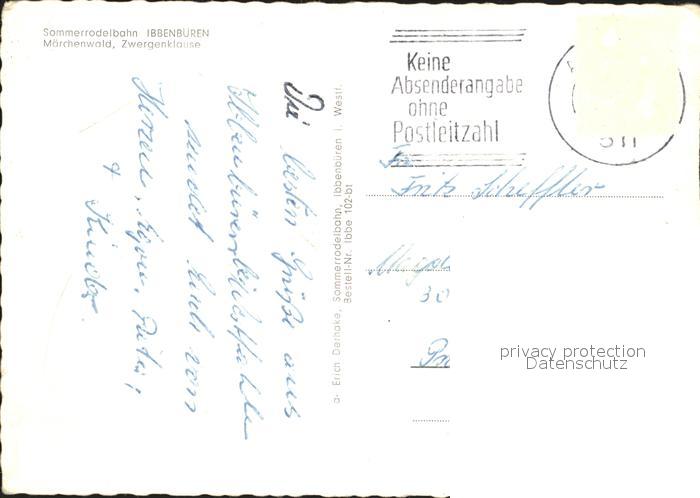 Sommerrodelbahn IBBENBÜREN
Märchenwald, Zwergenklause
Keine
Absenderangabe
ohne
Postleitzahl
511
Die besten Grüße aus
sendet Euch von
Herzen, Egon,
+ Kinder.
a- Erich Derhake, Sommerrodelbahn, Ibbenbüren i. Westf.
Bestell-Nr. Ibbe 102-b1
Fritz Scheffler
30
privacy protection
Datenschutz